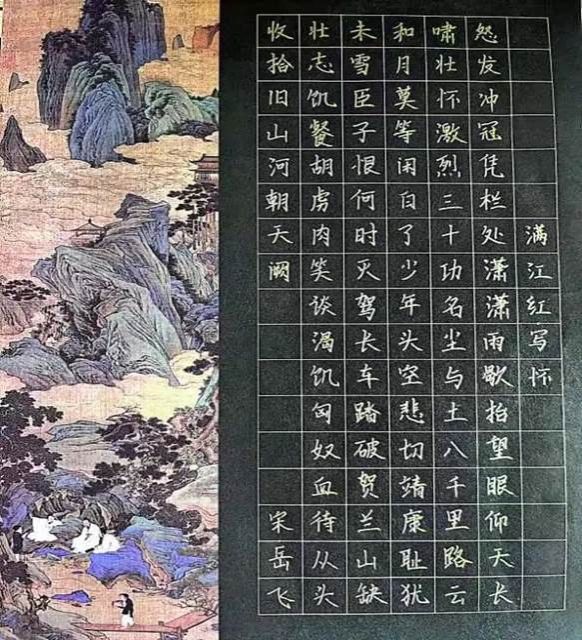 满江红写怀
怒发冲冠凭栏处潇潇雨歇抬望眼仰天长
啸壮怀激烈三十功名尘与土八千里路云
和月莫等闲白了少年头空悲切靖康耻犹
未雪臣子恨何时灭驾长车踏破贺兰山缺
壮志饥餐胡虏肉笑谈渴饮匈奴血待从头
收拾旧山河朝天阙
宋岳飞